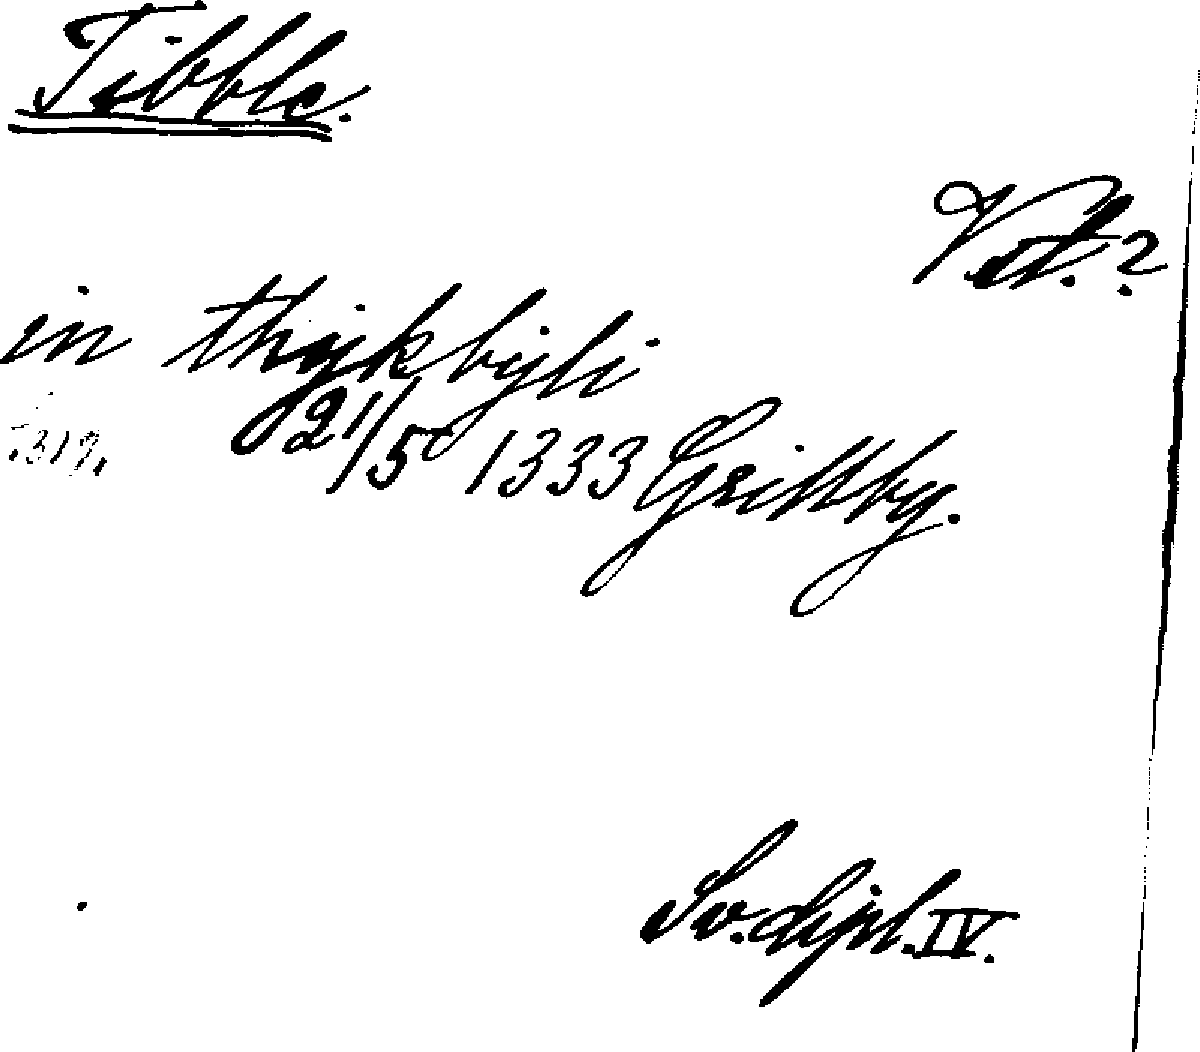 Tibble.
Vstl.?
in thykbyli
21/5 1333 Grillby.
Sv. dipl. IV.